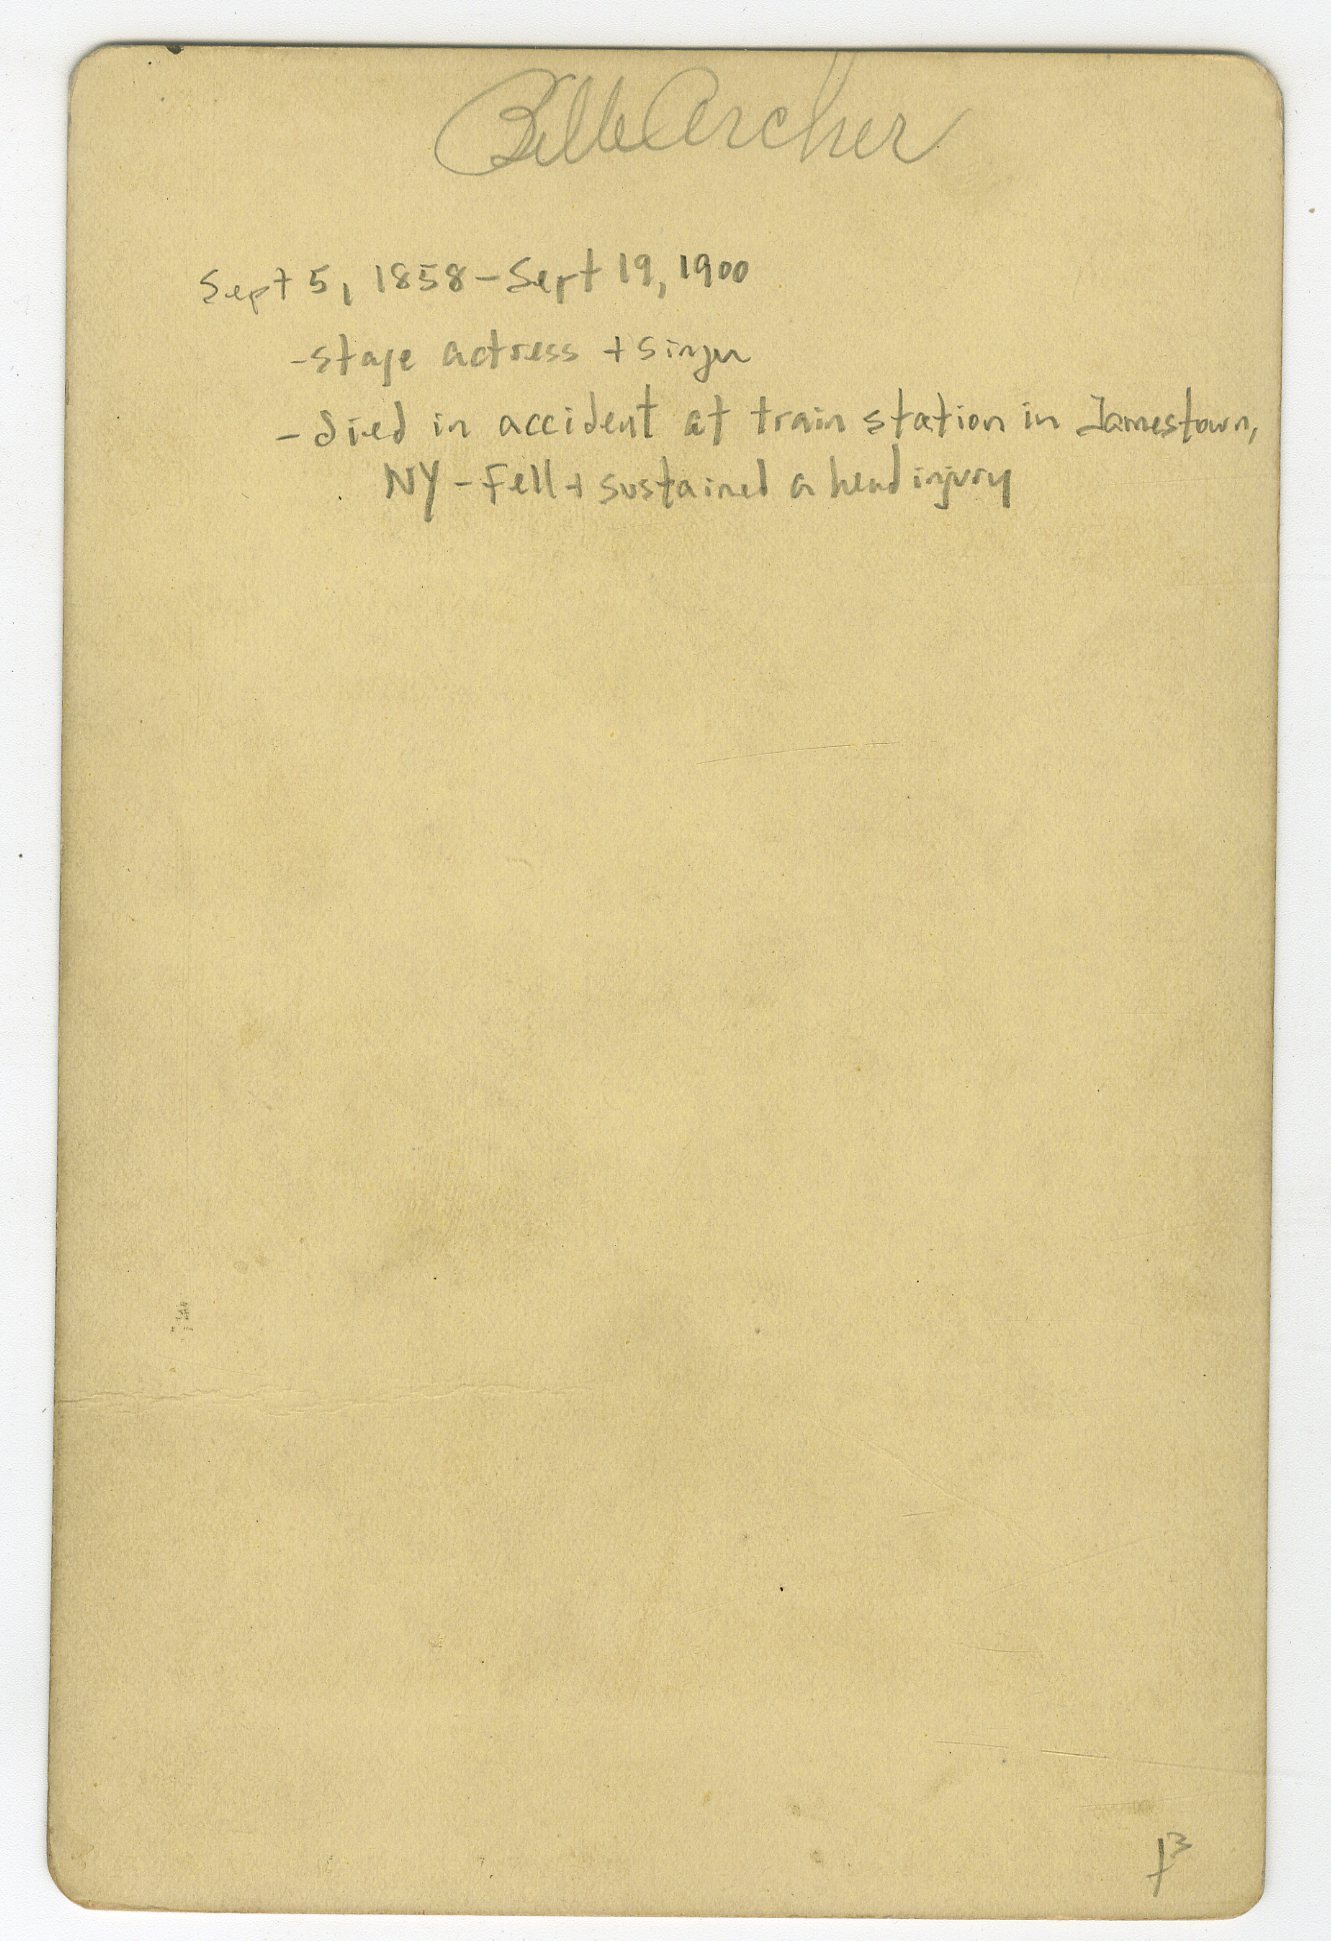 Belle Archer
Sept 5, 1858 - Sept 19, 1900
- stage actress + singer
- died in accident at train station in Jamestown,
NY - fell + sustained a head injury